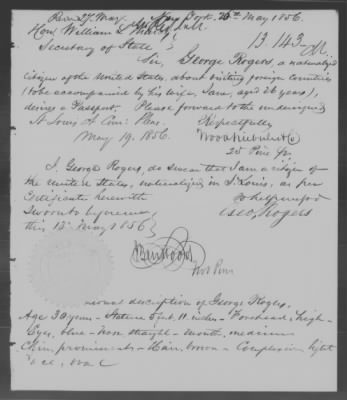 New York, 26th May 1856.
Hon. William L
Secretary of State
13.143.
Sir, George Rogers, a naturalized
citizen of the United States, about visiting foreign Countries
(to be accompanied by his wife, aged 26 years),
desires a Passport. Please forward to the undersigned
St Louis Ct Com: Pleas. Respectfully
May 19. 1856.
25 Pine St
I, George Rogers, do swear that I am a citizen of
the United States, naturalized in St. Louis, as per
Certificate herewith
Sworn to before me Geo, Rogers
this 12 May 1856
Not Pub
Personal description of George Rogers.
Age 30 years - Stature 5 feet, 11 inches - Forehead, high -
Eyes, blue - Nose straight - Mouth, medium
Chin, prominent - Hair, brown - Complexion, light
Face, oval